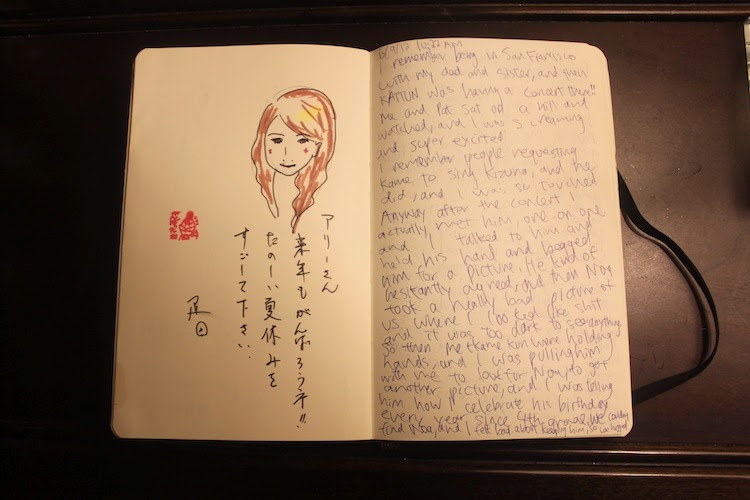 アリーさん
来年もがんばろうネ!!
たのしい夏休みを
すごして下さい.
6/9/12 10:22 pm
I remember being in San Francisco
with my dad and sister, and then
KATTUN was having a concert there!!
Me and Pat sat on a hill and
watched, and I was screaming
and super excited
I remember people requesting
Kame to sing Kizuna, and he
did, and I was so touched
Anyway after the concert I
actually met him, one on one
and I talked to him and
held his hand and begged
him for a picture. He kind of
hesitantly agreed, and then Noa
took a really bad picture of
us where I look like shit
and it was too dark to see anything
so then me+kame kun were holding
hands, and I was pulling him
with me to look for Noa, to get
another picture, and I was telling
him how I celebrate his birthday
every year since 4th grade, we couldn't
find Noa, and I felt bad about keeping him, so we hugged